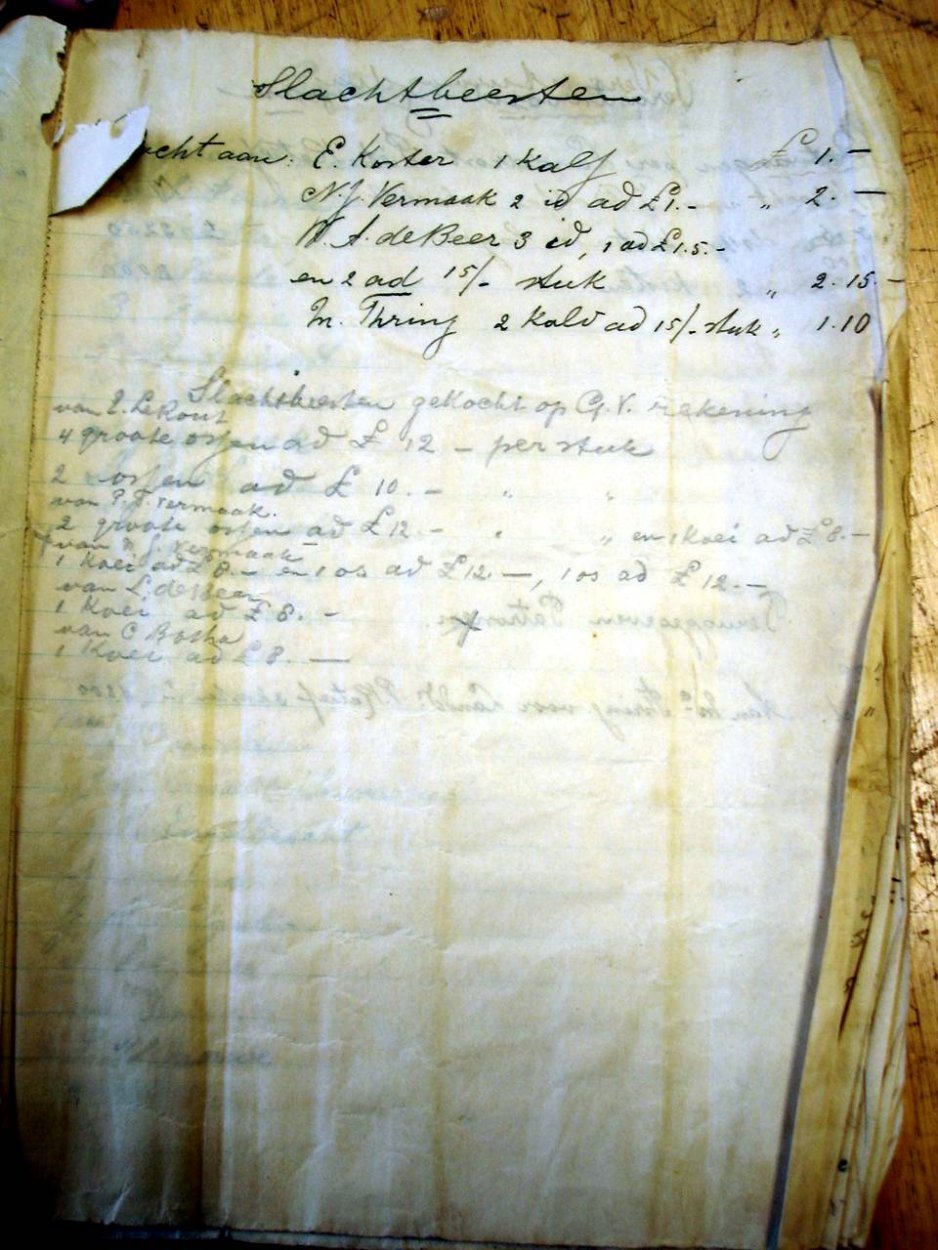 Slachtbeesten
ocht aan: E. Koster 1 Kalf £ 1.-
N.J. Vermaak 2 id ad £1.- " 2. -
A. de Beer 3 id, 1 ad £1.5.-
en 2 ad 15/- stuk " 2.15.-
M. Thring 2 Kalv ad 15/- stuk " 1.10
Slachtbeesten gekocht op G.V. rekening
van
4 groote ossen ad £ 12 - per stuk
2 ossen ad £ 10.- " "
van P. J. Vermaak.
2 groote ossen ad £12.- " " en 1 Koei ad £8.-
van J. Vermaak
1 Koei ad £8.- en 1 os ad £12.-, 1 os ad £12.-
van L. de Beer
1 Koei ad £8.-
van C Botha
1 Koei ad £8. -